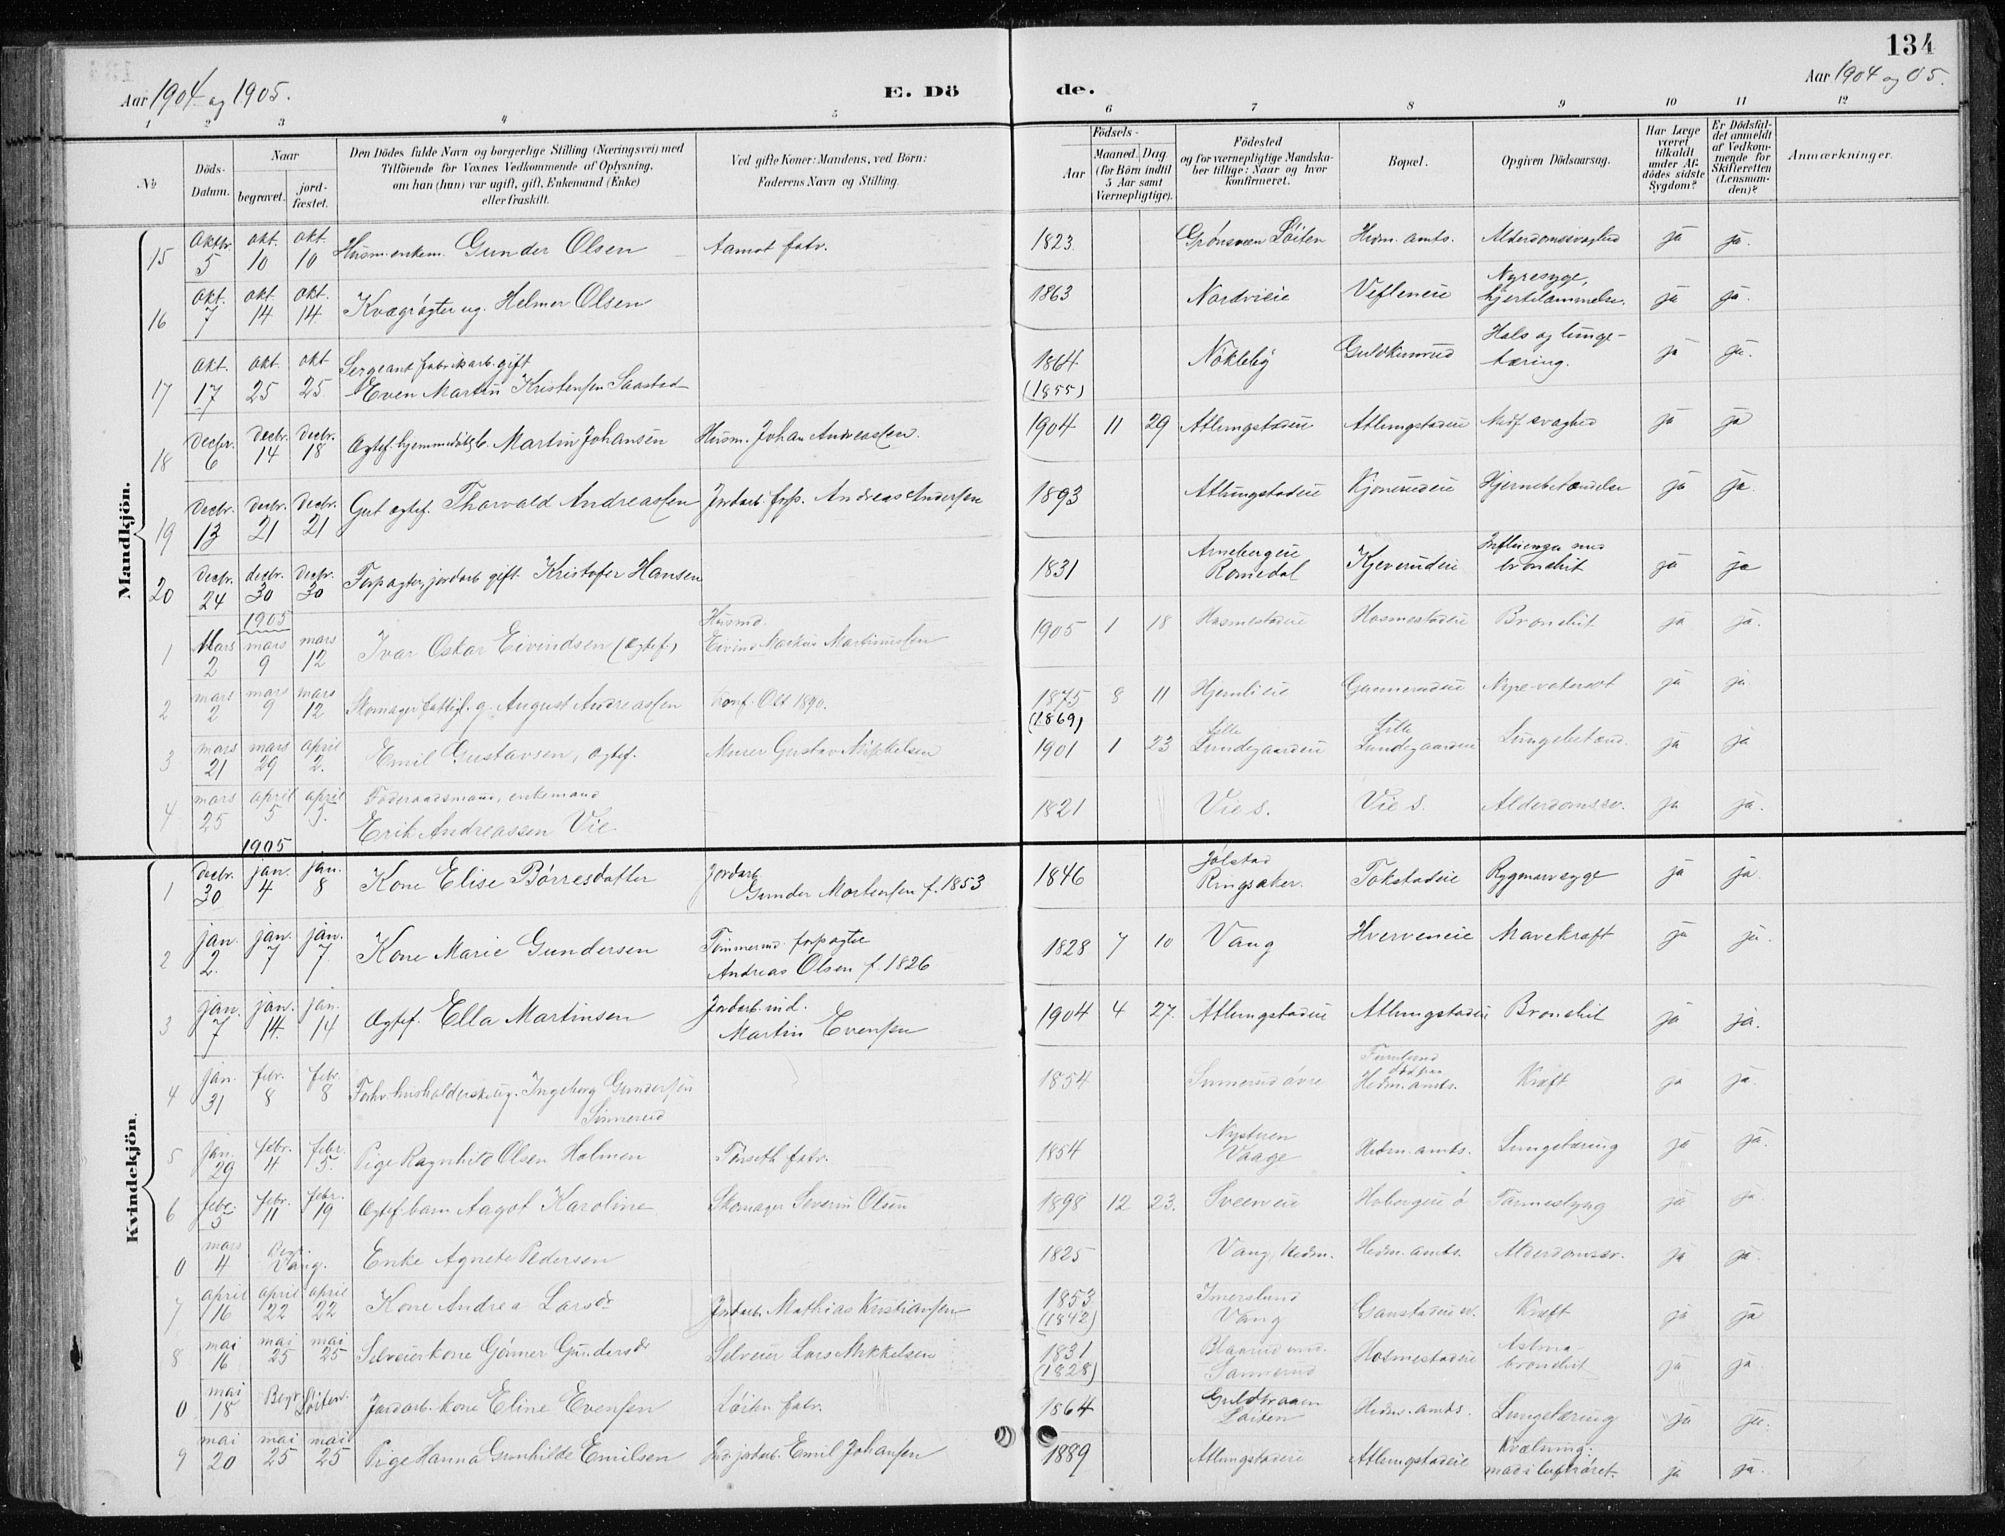 134
Aar 1904 og 1905.
E. Dö
de.
Aar 1904 og 05.
1 2 3 4 5 6 7 8 9 10 11 12
No
Döds-Datum.
Naar
begravet.
jord-fæstet.
Den Dödes fulde Navn og borgerlige Stilling (Næringsvei) med
Tilföiende for Voxnes Vedkommende af Oplysning,
om han (hun) var ugift, gift, Enkemand (Enke)
eller fraskilt.
Ved gifte Koner: Mandens, ved Börn:
Faderens Navn og Stilling.
Födsels-
Aar
Maaned. Dag
(for Börn indtil
5 Aar samt
Værnepligtige).
Födested
og for værnepligtige Mandska-
ber tillige: Naar og hvor
konfirmeret.
Bopæl.
Opgiven Dödsaarsag.
Har Læge
været
tilkaldt
under Af-
dödes sidste
Sygdom?
Er Dödsfal-
det anmeldt
af Vedkom-
mende for
Skifteretten
(Lensman-
den)?
Anmærkninger.
Mandkjön.
15 Oktbr. 5 okt. 10 okt. 10 Husm. enkem. Gunder Olsen Aamot fatv. 1823 Grønsveen Löiten Hedm. amts. Alderdomssvaghed ja ja.
16 Okt. 7 okt. 14 okt. 14 Kvægrøgter ug. Helmer Olsen 1863 Nordvieie Vefleneie Nyresyge, hjertelammelse. ja ja.
17 Okt. 17 okt. 25 okt 25 Sergeant fabrikarb. gift
Even Martin Kristensen Saastad 1864 (1855) Nökleby Guldkunrud Hals og lunge-tæring. ja ja.
18 Decbr. 6 Decbr. 14 Decbr. 18 Ægtef. hjemmedøbt Martin Johansen Husm. Johan Andreassen. 1904 11 29 Atlungstadeie Atlungstadeie Medf. svaghed ja ja
19 Decbr. 13 Decbr. 21 Decbr. 21 Gut ægtef. Thorvald Andreassen Jordarb. forp. Andreas Andersen 1893 Atlungstadeie Kjonerudeie Hjernebetændelse ja ja
20 Decbr. 24 decbr. 30 Decbr. 30 Forpagter, jordarb gift. Kristofer Hansen 1831 Arnebergeie Romedal Kjeverudeie Influenza med bronchit ja ja
1905
1 Mars 2 mars 9 mars 12 Ivar Oskar Eivindsen (ægtef.) Husmd. Eivind Markus Martinussen 1905 1 18 Hosmestadeie Hosmestadeie Bronchit ja ja.
2 mars 2 mars 9 mars 12 Skomager fattigl. g. August Andreassen Konf. Okt 1890. 1875 (1869) 8 11 Hjernlieie Gunnerudeie Nyre-vatersot ja ja
3 mars 21 mars 29 april 2. Emil Gustavsen, ægtef. Murer Gustav Mikkelsen 1901 1 23 Lille Lundegaardeie Lille Lundegaardeie Lungebetænd. ja ja
4 mars 25 april 5 april 13. Föderaadsmand, enkemand
Erik Andreassen Vie 1821 Vie s. Vie s. Alderdomssv. ja ja.
Kvindekjön.
1905
1 Decbr. 30 jan. 4 jan. 8 Kone Elise Börresdatter Jordarb Gunder Mortensen f. 1853 1846 Jölstad Ringsaker. Tokstadeie Rygmarvsyge ja ja
2 jan. 2. jan. 7 jan. 7 Kone Marie Gundersen Tömmermd. forpagter Andreas Olsen f. 1826 1828 7 10 Vang Hverveneie Mavekræft ja ja.
3 jan. 7 jan. 14. jan. 14 Ægtef. Ella Martinsen Jordarb. ind. Martin Evensen 1904 4 27. Atlungstadeie Atlungstadeie Bronchit ja ja.
4 jan. 31 febr. 8 febr. 8 Forhv. husholderske ug. Ingeborg Gundersen
Sinnerud 1854 Sinnerud övre Hedm. amts. Kræft ja ja.
5 jan. 29 febr. 4 febr. 5. Pige Ragnhild Olsen Holmen Torseth fatv. 1854 Nystuen Vaage Hedm. amts. Lungetæring ja ja.
6 febr. 5 febr. 11 febr. 19 Ægtef. barn Aagot Karoline Skomager Severin Olsen 1898 12 23. Sveenseie Hobergeie ö Tarmeslyng ja ja
0 mars 4 Begr. Vang. Enke Agnete Pedersen 1825 Vang, Hedm. Hedm. amts. Alderdomssv. ja ja.
7 april 16 april 22 april 22 Kone Andrea Larsdr Jordarb. Mathias Kristiansen 1853 (1842) Imerslund Vang Gaustadeie v. Kræft ja ja
8 mai 16 mai 25 mai 25 Selveierkone Gönner Gundersdr Selveier Lars Mikkelsen 1831 (1828) Hosmestadeie Astma-bronchit ja ja.
0 mai 18 Begr. Löiten. Jordarb. kone Eline Evensen Löiten fatv. 1864 Guldbraaen Löiten Hedm. amts. Lungetæring ja ja.
9 mai 20 mai 25 mai 25 Pige Hanna Gunhilde Emilsen Ind. jordarb. Emil Johansen 1889 Atlungstadeie Atlungstadeie Kvælning: mad i luftröret. ja ja.